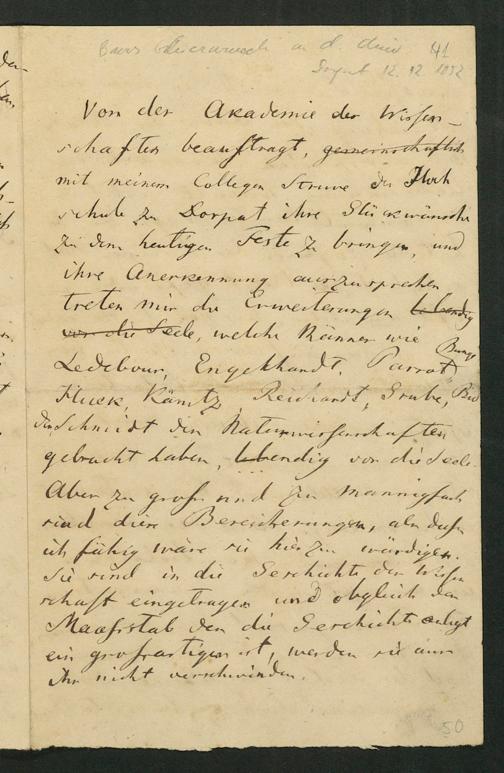 41
Dorpat 12. 12. 1852
Von der Akademie der Wissen-
schaften beauftragt, gemeinschaftlich
mit meinem Collegen Struve der Hoch
schule zu Dorpat ihre Glückwünsche
zu dem heutigen Feste zu bringen, und
ihre Anerkennung auszusprechen
treten mir die Erweiterungen lebendig
vor die Seele, welche Männer wie
Ledebour, Engelhardt, Parrot, Bunge
Kämtz, Reichardt, Grube,
Schmidt den Naturwissenschaften
gebracht haben, lebendig vor die Seele.
Aber zu groß und zu mannigfach
sind diese Bereicherungen, als daß
ich fähig wäre sie hier zu würdigen.
Sie sind in die Geschichte der Wissen
schaft eingetragen und obgleich der
Maaßstab den die Geschichte anlegt
ein großartiger ist, werden sie aus
ihr nicht verschwinden.
50